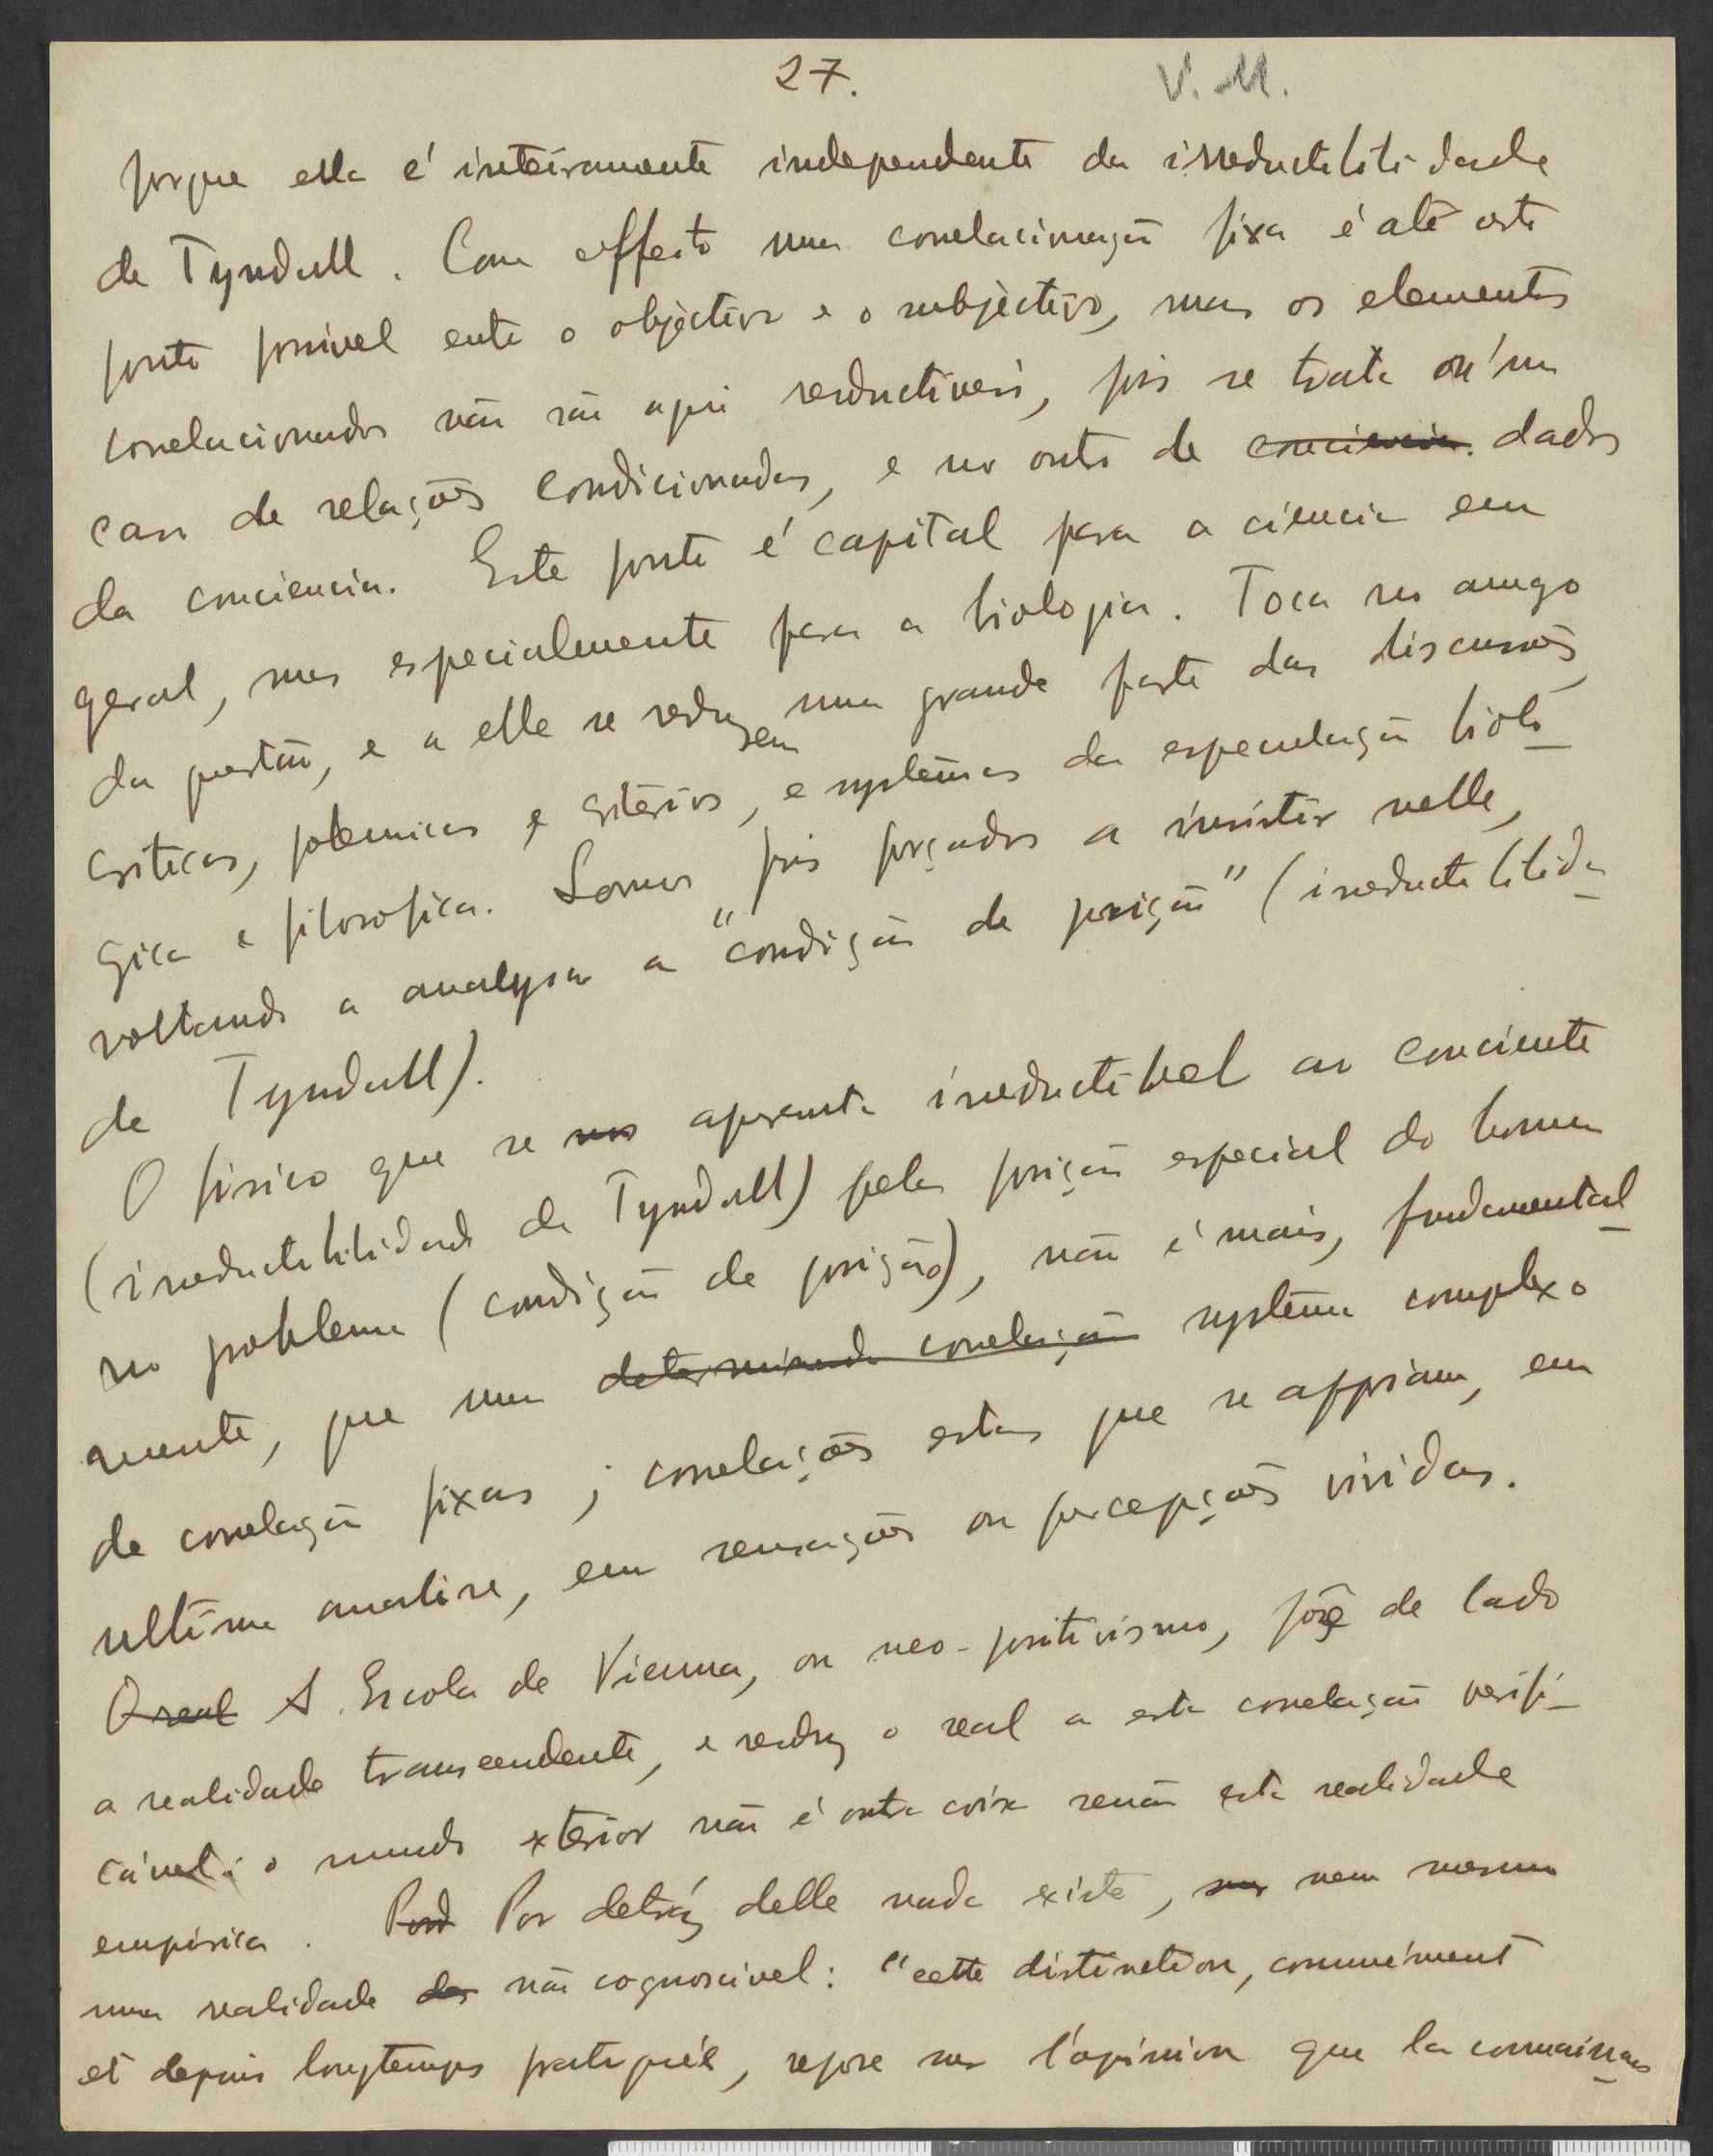 27.
V. M.
porque ella é inteiramente independente da irreductibilidade
de Tyndall. Com effeito uma correlacionação fixa é até este
ponto possivel entre o objectivo e o subjectivo, mas os elementos
correlacionados não são aqui reductiveis, pois se trata n'um
caso de relações condicionadas, e no outro de conciencia. dados
da conciencia. Este ponto é capital para a ciencia em
geral, mas especialmente para a biologia. Toca no amago
da questão, e a elle se reduzem uma grande parte das discussões,
criticas, polemicas e criterios, e systemas da especulação bioló
gica e filosofica. Somos pois forçados a insistir nelle,
voltando a analysar a "condição de posição" (irreductibilida
de Tyndall).
O fisico que se nos apresenta irreductibel ao conciente
(irreductibilidade de Tyndall) pela posição especial do homem
no problema (condição de posição), não é mais, fundamental
mente, que um determinada correlação systema complexo
de correlação fixas; correlações estas que se appoiam, em
ultima analise, em sensações ou percepções vividas.
O real A Escola de Vienna, ou neo-positivismo, põe de lado
a realidade transcendente, e reduz o real a esta correlação verifi-
cável: o mundo exterior não é outra coisa senão esta realidade
empirica. Por Por detráz delle nada existe, nem mesmo
uma realidade não cognoscivel: "cette distinction, communément
et depuis longtemps pratiquée, repose sur l'opinion que la connaissan